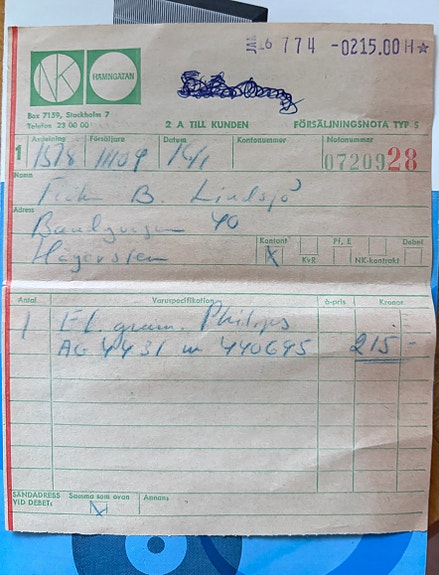 JAN 16 774 -0215.00 H☆
NK HAMNGATAN
Box 7159, Stockholm 7
Telefon 23 00 00
2 A TILL KUNDEN FÖRSÄLJNINGSNOTA TYP S
1 Avdelning Försäljare Datum Kontonummer Notanummer
1378 16/1 0720928
Namn
B. Lindsjö
Adress
40
Hägersten
Kontant Pf. E Debet
X KvR NK-kontrakt
Antal Varuspecifikation à-pris Kronor
1 El. gram. Philips
AG 4431 440645 215-
SÄNDADRESS VID DEBET: Samma som ovan Annans
X